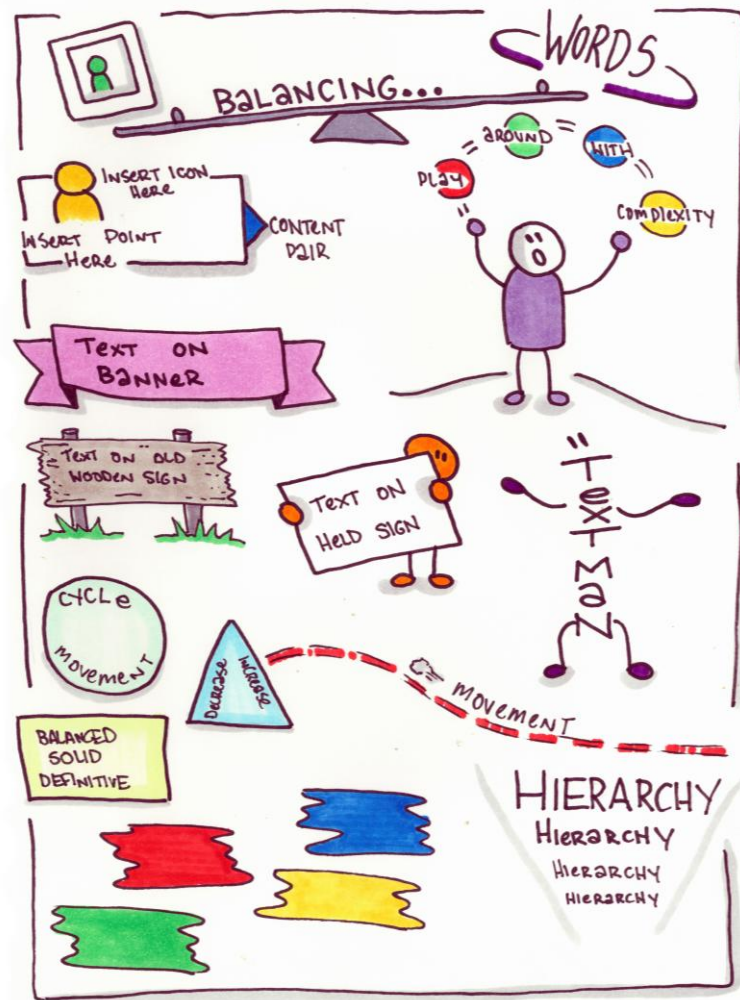 WORDS
BALANCING...
PLAY
AROUND
WITH
COMPLEXITY
INSERT ICON
HERE
INSERT POINT
HERE
CONTENT
PAIR
TEXT ON
BANNER
TEXT ON OLD
WOODEN SIGN
TEXT ON
HELD SIGN
TEXT MAN
CYCLE
MOVEMENT
DECREASE
INCREASE
MOVEMENT
BALANCED
SOLID
DEFINITIVE
HIERARCHY
HIERARCHY
HIERARCHY
HIERARCHY